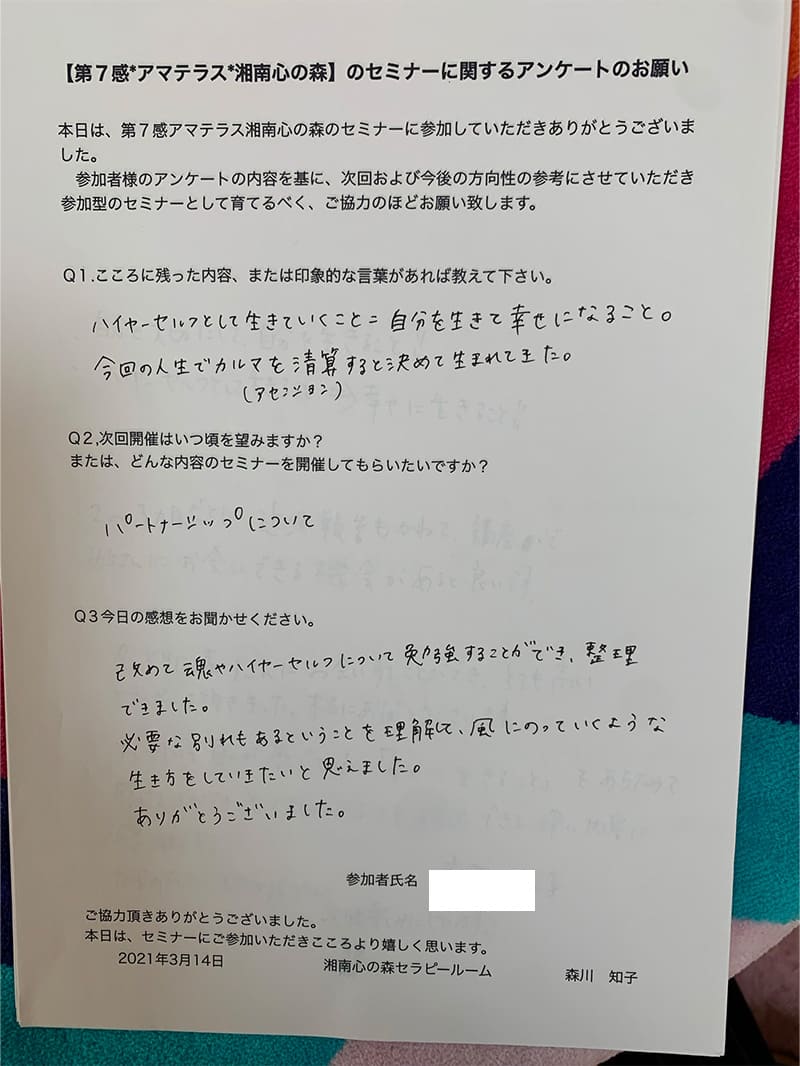 【第７感*アマテラス*湘南心の森】のセミナーに関するアンケートのお願い
本日は、第７感アマテラス湘南心の森のセミナーに参加していただきありがとうございま
した。
参加者様のアンケートの内容を基に、次回および今後の方向性の参考にさせていただき
参加型のセミナーとして育てるべく、ご協力のほどお願い致します。
Ｑ１.こころに残った内容、または印象的な言葉があれば教えて下さい。
ハイヤーセルフとして生きていくこと＝自分を生きて幸せになること。
今回の人生でカルマを清算すると決めて生まれてきた。
（アセンション）
Ｑ２,次回開催はいつ頃を望みますか？
または、どんな内容のセミナーを開催してもらいたいですか？
パートナーシップについて
Ｑ３今日の感想をお聞かせください。
改めて魂やハイヤーセルフについて勉強することができ、整理
できました。
必要な別れもあるということを理解して、風にのっていくような
生き方をしていきたいと思えました。
ありがとうございました。
参加者氏名
ご協力頂きありがとうございました。
本日は、セミナーにご参加いただきこころより嬉しく思います。
2021年3月14日　湘南心の森セラピールーム　森川　知子